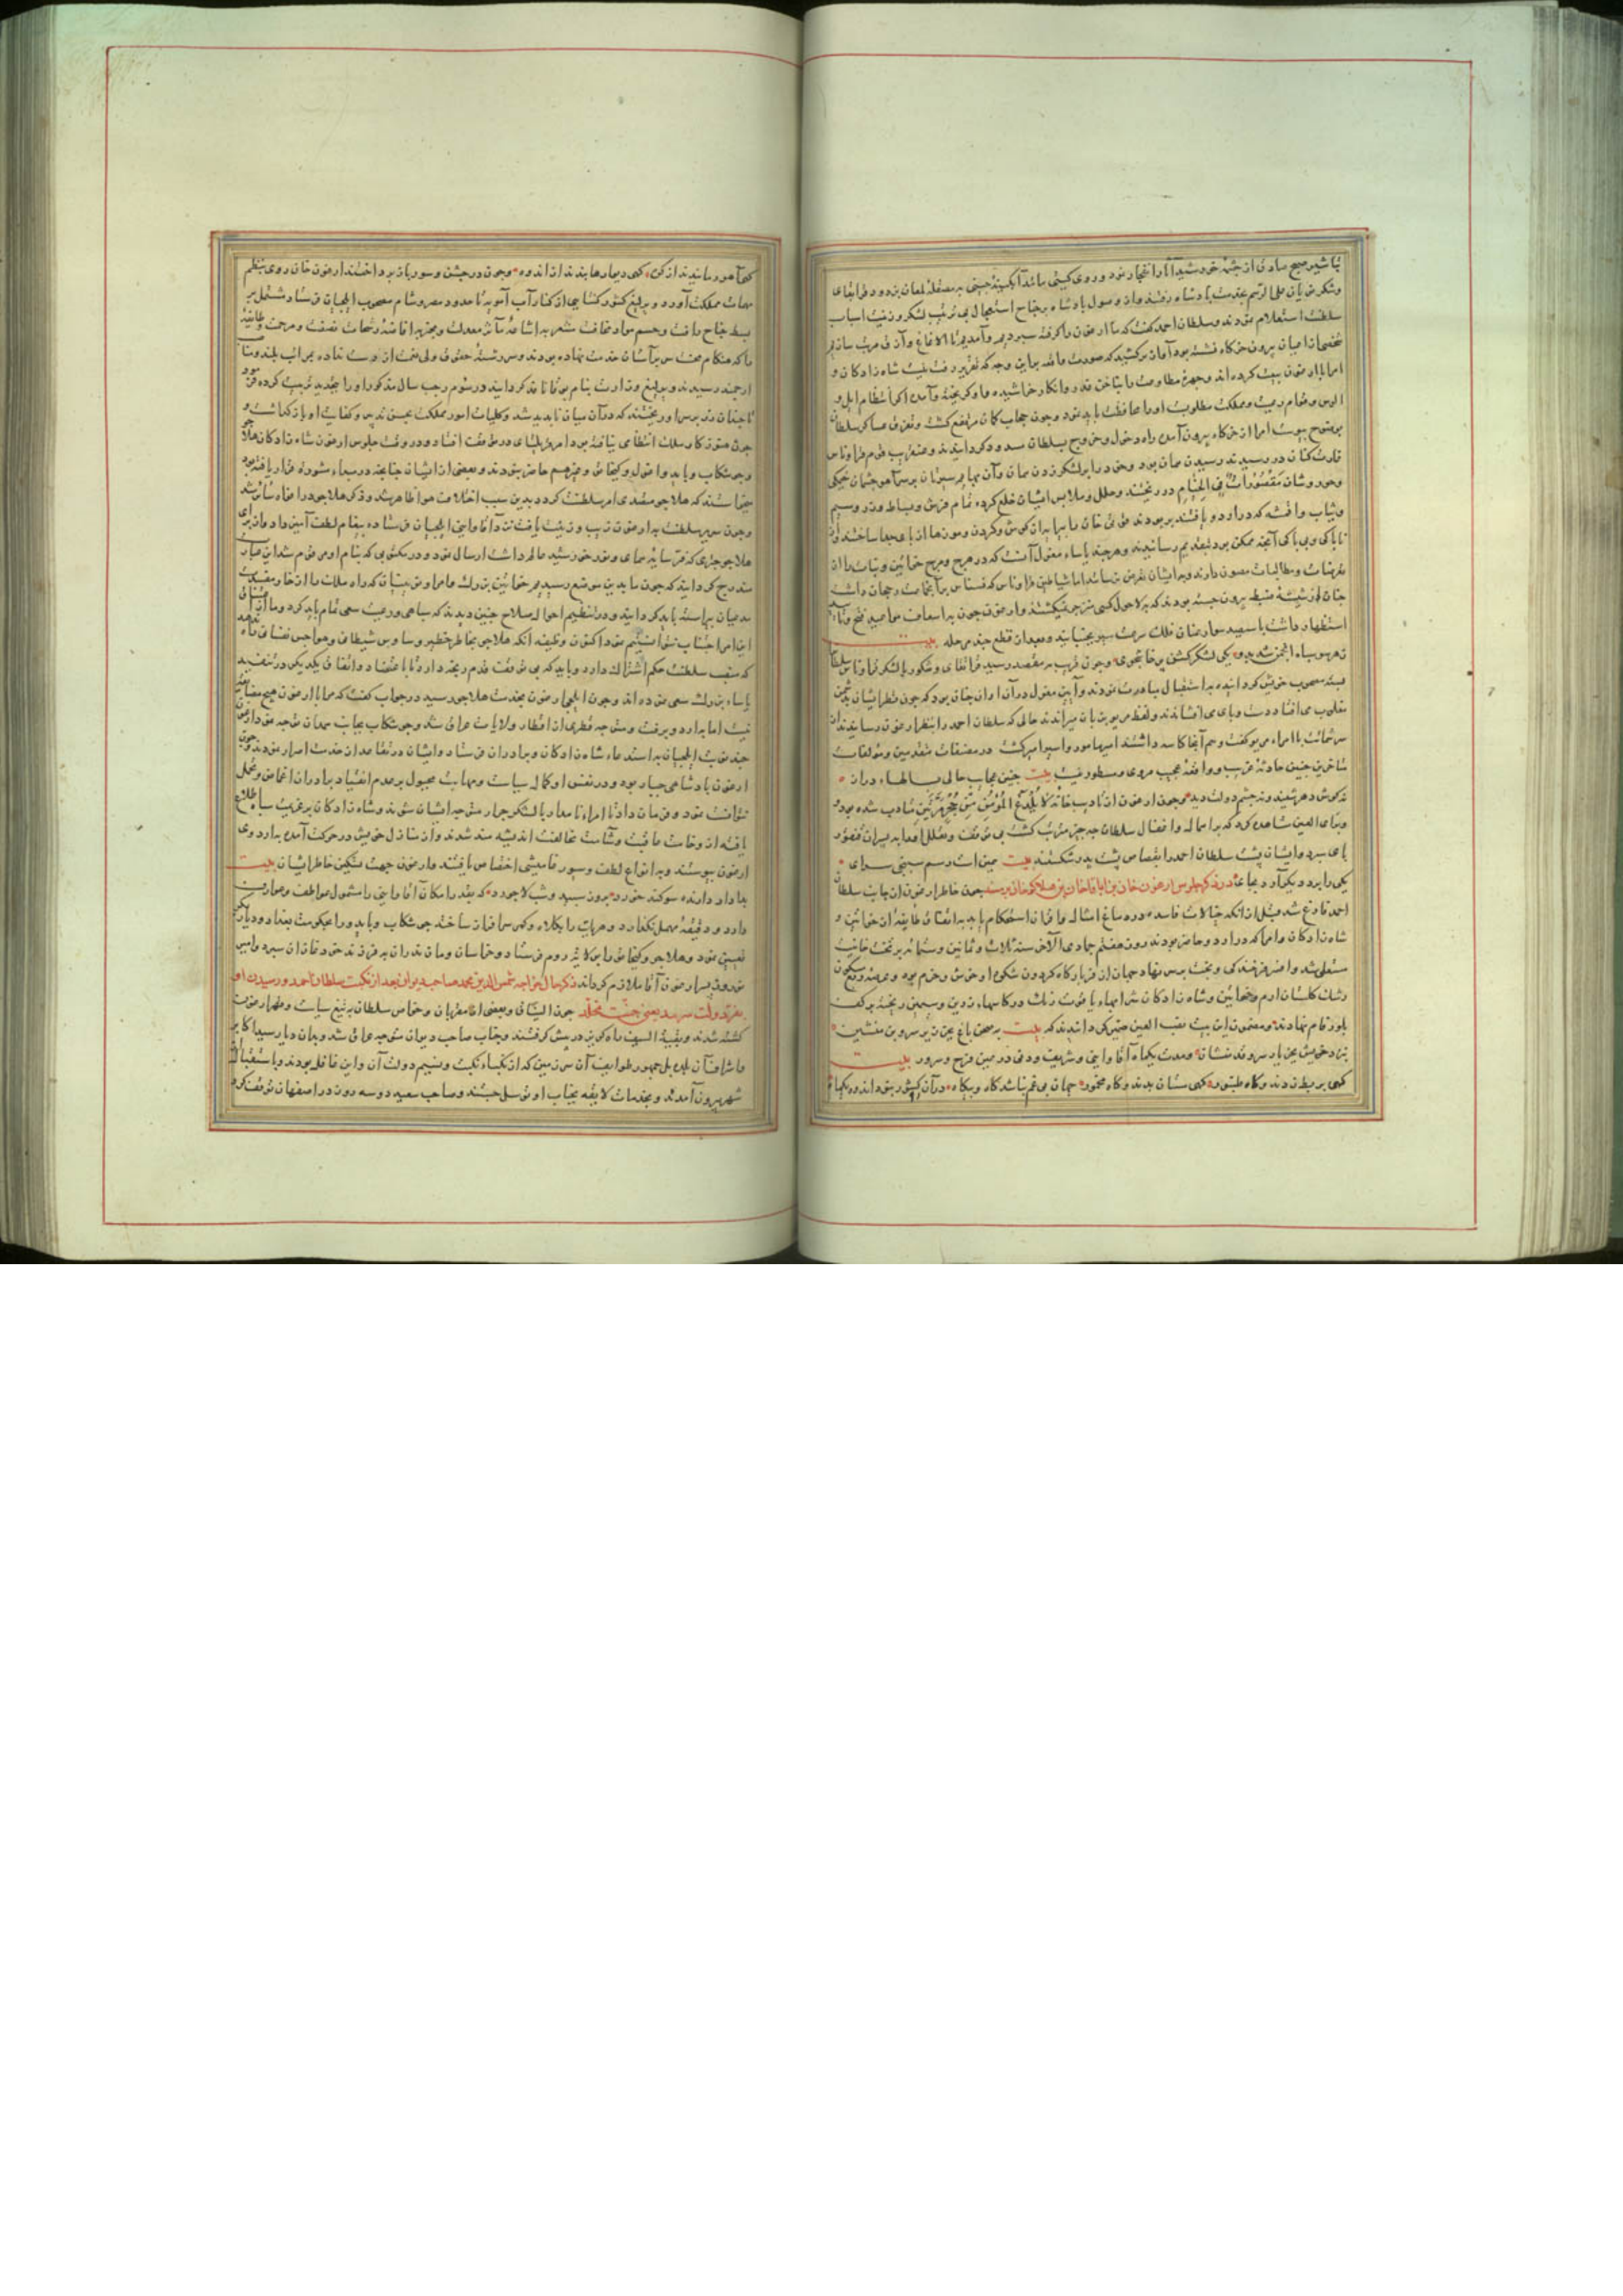 تباشیر صبح صادق از چشمهٔ خورشید آثار انفجار نمود و روی گیتی مانند آبگینهٔ چینی به مصقلهٔ لمعان بزدود قرابغای
و شکر علی الرسم بخدمت پادشاه رفتند واز وصول پادشاه بر جناح استعجال بی ترتیب لشکر و زینت اسباب
سلطنت استعلام نمودند و سلطان احمد گفت که ما ارغون را گرفته سپردیم و آمدیم تا الاغ
شخصی از میان بیرون خرکاه نشسته بود آواز برکشید که صورت واقعه براین وجه که تقریر رفت نیست شاه زادکان و
امرا با ارغون بیعت کرده اند و چهرهٔ مطاوعت را بناخن غدر و انکار خراشیده و او گریخته آمده اگر انتظام ایل و
الوس و قوام رعیت و مملکت مطلوبست او را محافظت باید نمود و چون حجاب گمان مرتفع گشت و تفرق عساکر سلطان
بوضوح پیوست امرا از خرکاه بیرون آمده راه دخول و خروج بسلطان مسدود گردانیدند و متعاقب قوم قراوناس
غارت کنان در رسیدند رسیدن همان بود و خود را بر لشکر زدن همان وآن
وحور وشان مَقْصُوراتٌ فِی الْخِیَامِ در ریختند و حلل و ملابس ایشان خلع کرده تمام فرش و بساط و زر و سیم
وثیاب واقمشه که در اردو یافتند بربودند قوتی خان ما بها به از گوش و گردن و موزها از پای جدا ساختند و از
نا پاکی و بی باکی آنچه ممکن بود بتقدیم رسانیدند وهر چند یاساء مغول آنست که در هرج و مرج خواتین و بنات را از
تعرضات و مطالبات مصون دارند و به ایشان تعرض نرسانند اما شیاطین قراوناس که
چنان از شیشهٔ ضبط بیرون جسته بودند که به لاحول کسی منزجر نمیکشتند وارغون چون به اسعاف مواعید فتح و تأیید
استظهار داشت با سپید سواره عنان فلک سرعت سپر بجنبانید و بعد از قطع چند مرحله بیت
ز هر سو سپاه انجمن شد بدو یکی لشکر کشن پرخاشجوی وچون قریب به مقصد رسید قرابغای و شکور با لشکر قراوناس سلطان
بسته مصحوب خویش گردانیده به استقبال مبادرت نمودند وآیین مغول درآن اوان چنان بود که چون نظر ایشان بر دشمن
مغلوب می افتاد دست و پای می افشاندند ولفظ مریو بر زبان میراندند حالی که سلطان احمد را بنظر ارغون رسانیدند از
سر شماتت با امراء مریو گفت و هم آنجا کاسه داشتند امیر مأمور و اسیر امیر گشت در مصنفات متقدمین و مؤلفات
متأخرین چنین حادثهٔ غریب و واقعهٔ عجیب مروی و مسطور نیست بیت چنین عجایب حالی بسالهاء دراز
نه گوش دهر شنید و نه چشم دولت دید وچون ارغون از تأدیب خاتمه لا یُلْدَغُ الْمُؤْمِنُ مِنْ جُحْرٍ مَرَّتَیْنِ متأدب شده بود و
وبرأی العین مشاهده کرد که بر اهمال و افضال سلطان چه چیز مترتب گشت بی توقف و تعلل او را به پسران قنغور
بای سپرد و ایشان پشت سلطان احمد را بقصاص پشت پدر شکستند بیت همین است رسم سپنجی سرای
یکی را برد دیگر آرد بجای ذکر جلوس ارغون خان بن اباقاخان بن هلاکوخان بر تخت چون خاطر ارغون از جانب سلطان
احمد فارغ شد قبل از آنکه خیالات فاسده در دماغ امثال و اقران استحکام یابد به اتفاق طایفه از خواتین و
شاه زادکان و امرا که در اردو حاضر بودند روز هفتم جمادی الآخر سنهٔ ثلاث و ثمانین و ستمائه بر تخت خانیت
مستعلی شد وافسر فرخنده کی و بخت بر سر نهاد جهان از فر بارگاه گردون شکوه او خوش و خرم بود و عرصهٔ ربع مسکون
رشک گلستان ارم و خواتین و شاه زادکان شرابهاء یاقوت رنگ در کاسهاء زرین و سیمین ریخته بر کف
بلور فام نهادند و مضمون این بیت نصب العین ضمیر گردانیدند که بیت به صحن باغ بجز زیر سرو بن منشین
بزم خویش بجز یار سروقد منشان ومدت یکماه آقا واینی وشریف ودنی در عین فرح و سرور بیت
کهی بربط زدند و گاه طنبور کهی مستان بدند و گاه مخمور جهان بی غم نباشد گاه و بیگاه در آن کشور نبود اندوه یکماه
کهی آهو رمانیدند از کوه کهی دیوارها بدند از اندوه وچون از جشن و سور باز پرداختند ارغون خان روی بنظم
مهمات مملکت آورد و یرلیغ کشور کشایی از کنار آب آمویه تا حدود مصر و شام مصحوب ایلچیان فرستاد مشتمل بر
بسط جناح رأفت و حسم مواد مخافت مشعر به اشاعهٔ مآثر معدلت و مخبر به افاضهٔ رشحات نصفت و مرحمت و طایفهٔ
را که هنگام محنت سر بر آستان خدمت نهاده بودند و سر رشتهٔ حقوق ولی نعمت از دست نداده بمراتب بلند و مناصب
ارجمند رسیدند و یرلیغ وزارت بنام بوقا نافذ گردانید در سوم رجب سال مذکور او را بتجدید تربیت کرده
تا چندان زر بر سر او ریختند که در آن میان ناپدید شد و کلیات امور مملکت بحسن تدبیر و کفایت او بازگذاشت و
چون هنوز کار سلک انتظامی نیافته بود امر قریلتای در موقف افتاد و در وقت جلوس ارغون شاه زادکان هلاجو
وجوشکاب وبایدو وامغول وکیخاتو و غیرهم حاضر نبودند و بعضی از ایشان جنانچه در مبداء مشورهٔ قرار یافته بود
میخواستند که هلاجو متصدی امر سلطنت گردد بدین سبب اختلاف هوا ظاهر شد و ذکر هلاجو در افواه سائر شد
وچون سریر سلطنت به ارغون زیب و زینت یافت نزد آقا واینی ایلچیان فرستاده پیغام لطف آمیز داد واز برای
هلاجو چتری که فر سایهٔ همای ونور خورشید عالم داشت ارسال نمود و در مکتوبی که بنام او مرقوم شد این عبارت
مندرج گردانید که چون ما بدین موضع رسیدیم خواتین بزرگ و امرا و نوینان که راه ملک را از خار مفسدت
میان براسته باید گردانید و در تنظیم احوال صلاح چنین دیدند که سپاهی و رعیت سعی تمام باید کرد و ما از
این امر اجتناب نتوانستیم نمود اکنون وظیفه آنکه هلاجو بخاطر خطیر وساوس شیطان و هواجس نفسانی راه ندهد
که منصب سلطنت حکم اشتراک دارد وباید که بی توقف قدم رنجه دارد تا با عتضاد و اتفاق یکدیکر در تنفیذ
یاساء بزرگ سعی نموده اند وچون ایلچی ارغون بخدمت هلاجو رسید در جواب گفت که مرا با ارغون هیچ مضایقه
نیست اما به اردو نرفت ومتوجه قطری از اقطار ولایات عراق شد وجوشکاب بجانب همدان توجه نمود ارغون
چند نوبت ایلچیان به استدعاء شاه زادکان و برادران فرستاد وایشان در تقاعد از خدمت اصرار نمودند چون
ارغون پادشاهی جبار بود و در نفس او کمال سیاست و مهابت مجبول بر عدم انقیاد برادران اغماض و تحمل
نتوانست نمود و فرمان داد تا امراء نامدار با لشکر جرار متوجه ایشان شوند و شاه زادکان بر عزیمت سپاه اطلاع
یافته از وخامت عاقبت وشآمت مخالفت اندیشه مند شدند واز منازل خویش در حرکت آمده به اردوی
ارغون پیوستند و به انواع لطف و سیورغامیشی اختصاص یافتند وارغون جهت تسکین خاطر ایشان بیت
بدادار دارنده سوگند خورد بروز سپید و شب لاجورد که بقدر امکان آقا واینی را مشمول عواطف و عوارف
دارد و دقیقهٔ مهمل نگذارد و هریک را بکلاه و کمر سرافراز ساخته جوشکاب و بایدو را بحکومت بغداد و دیاربکر
تعیین نمود وهلاجو وکیخاتو را بولایت روم فرستاد و خراسان و مازندران به فرزند خود غازان سپرد و
بسر ارغون آقا ملازم گردانید ذکر حال خواجه شمس الدین محمد صاحب دیوان بعد از نکبت سلطان احمد و رسیدن او
بمقر دولت سرمد یعنی جنت مخلد چون الیناق و بعضی از مقربان و خواص سلطان به تیغ سیاست و قهر ارغون
کشته شدند و بقیة السیف راه گریز در پیش گرفتند وجناب صاحب دیوان متوجه عراق شد و بدان دیار رسید اکابر
و اشراف آن بلده بل جمهور طوایف آن سرزمین که از نکباء نکبت و نسیم دولت آن واین غافل بودند با استقبال از
شهر بیرون آمدند و بخدمات لایقه بجناب او توسل جستند و صاحب سعید دو سه روز در اصفهان توقف کرد